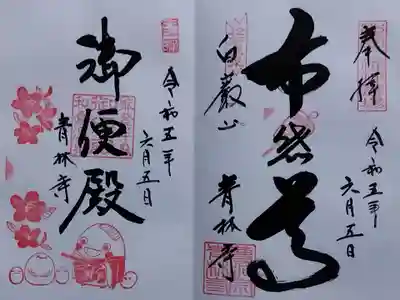 奉拝
令和五年
六月五日
布悉道
白巌山
青林寺
御便殿
令和五年
六月五日
青林寺